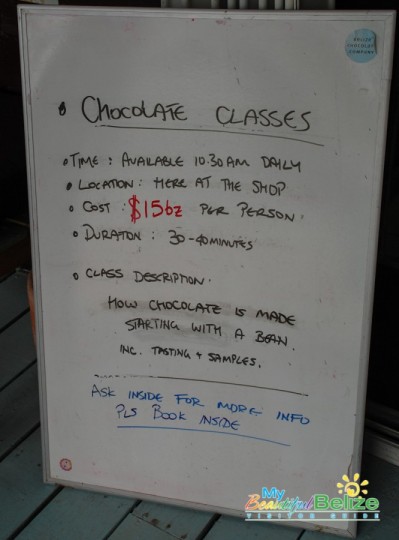 BELIZE
CHOCOLATE
COMPANY
• CHOCOLATE CLASSES
• TIME : AVAILABLE 10.30AM DAILY
• LOCATION : HERE AT THE SHOP
• COST : $15bz PER PERSON.
• DURATION : 30-40MINUTES
• CLASS DESCRIPTION.
HOW CHOCOLATE IS MADE
STARTING WITH A BEAN.
INC. TASTING + SAMPLES.
ASK INSIDE FOR MORE INFO
PLS BOOK INSIDE
My
Beautiful Belize
VISITOR GUIDE